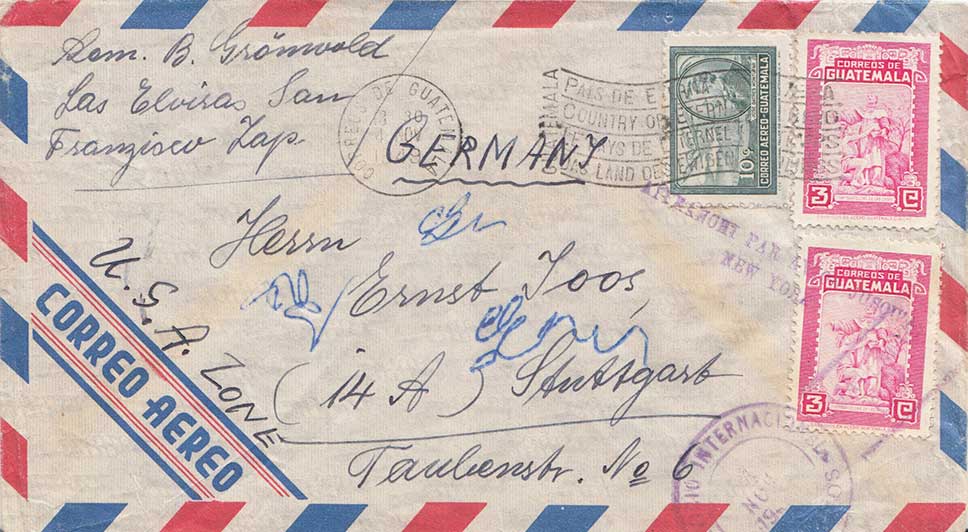 Rem. B. Grönwold
Las Elviras San
Franzisco Zap.
CORREOS DE GUATEMALA
GUATEMALA
PAIS DE
COUNTRY OF
PAYS DE
LAND DES
10c
CORREO AEREO-GUATEMALA
CORREOS DE
GUATEMALA
3 C
CORREOS DE
GUATEMALA
3 C
GERMANY
PAR
NEW YORK JUSQU'A
Herrn
Ernst Joos,
(14 A) Stuttgart
Taubenstr. No 6
U.S.A. ZONE
CORREO AEREO
INTERNACIONAL
NOV